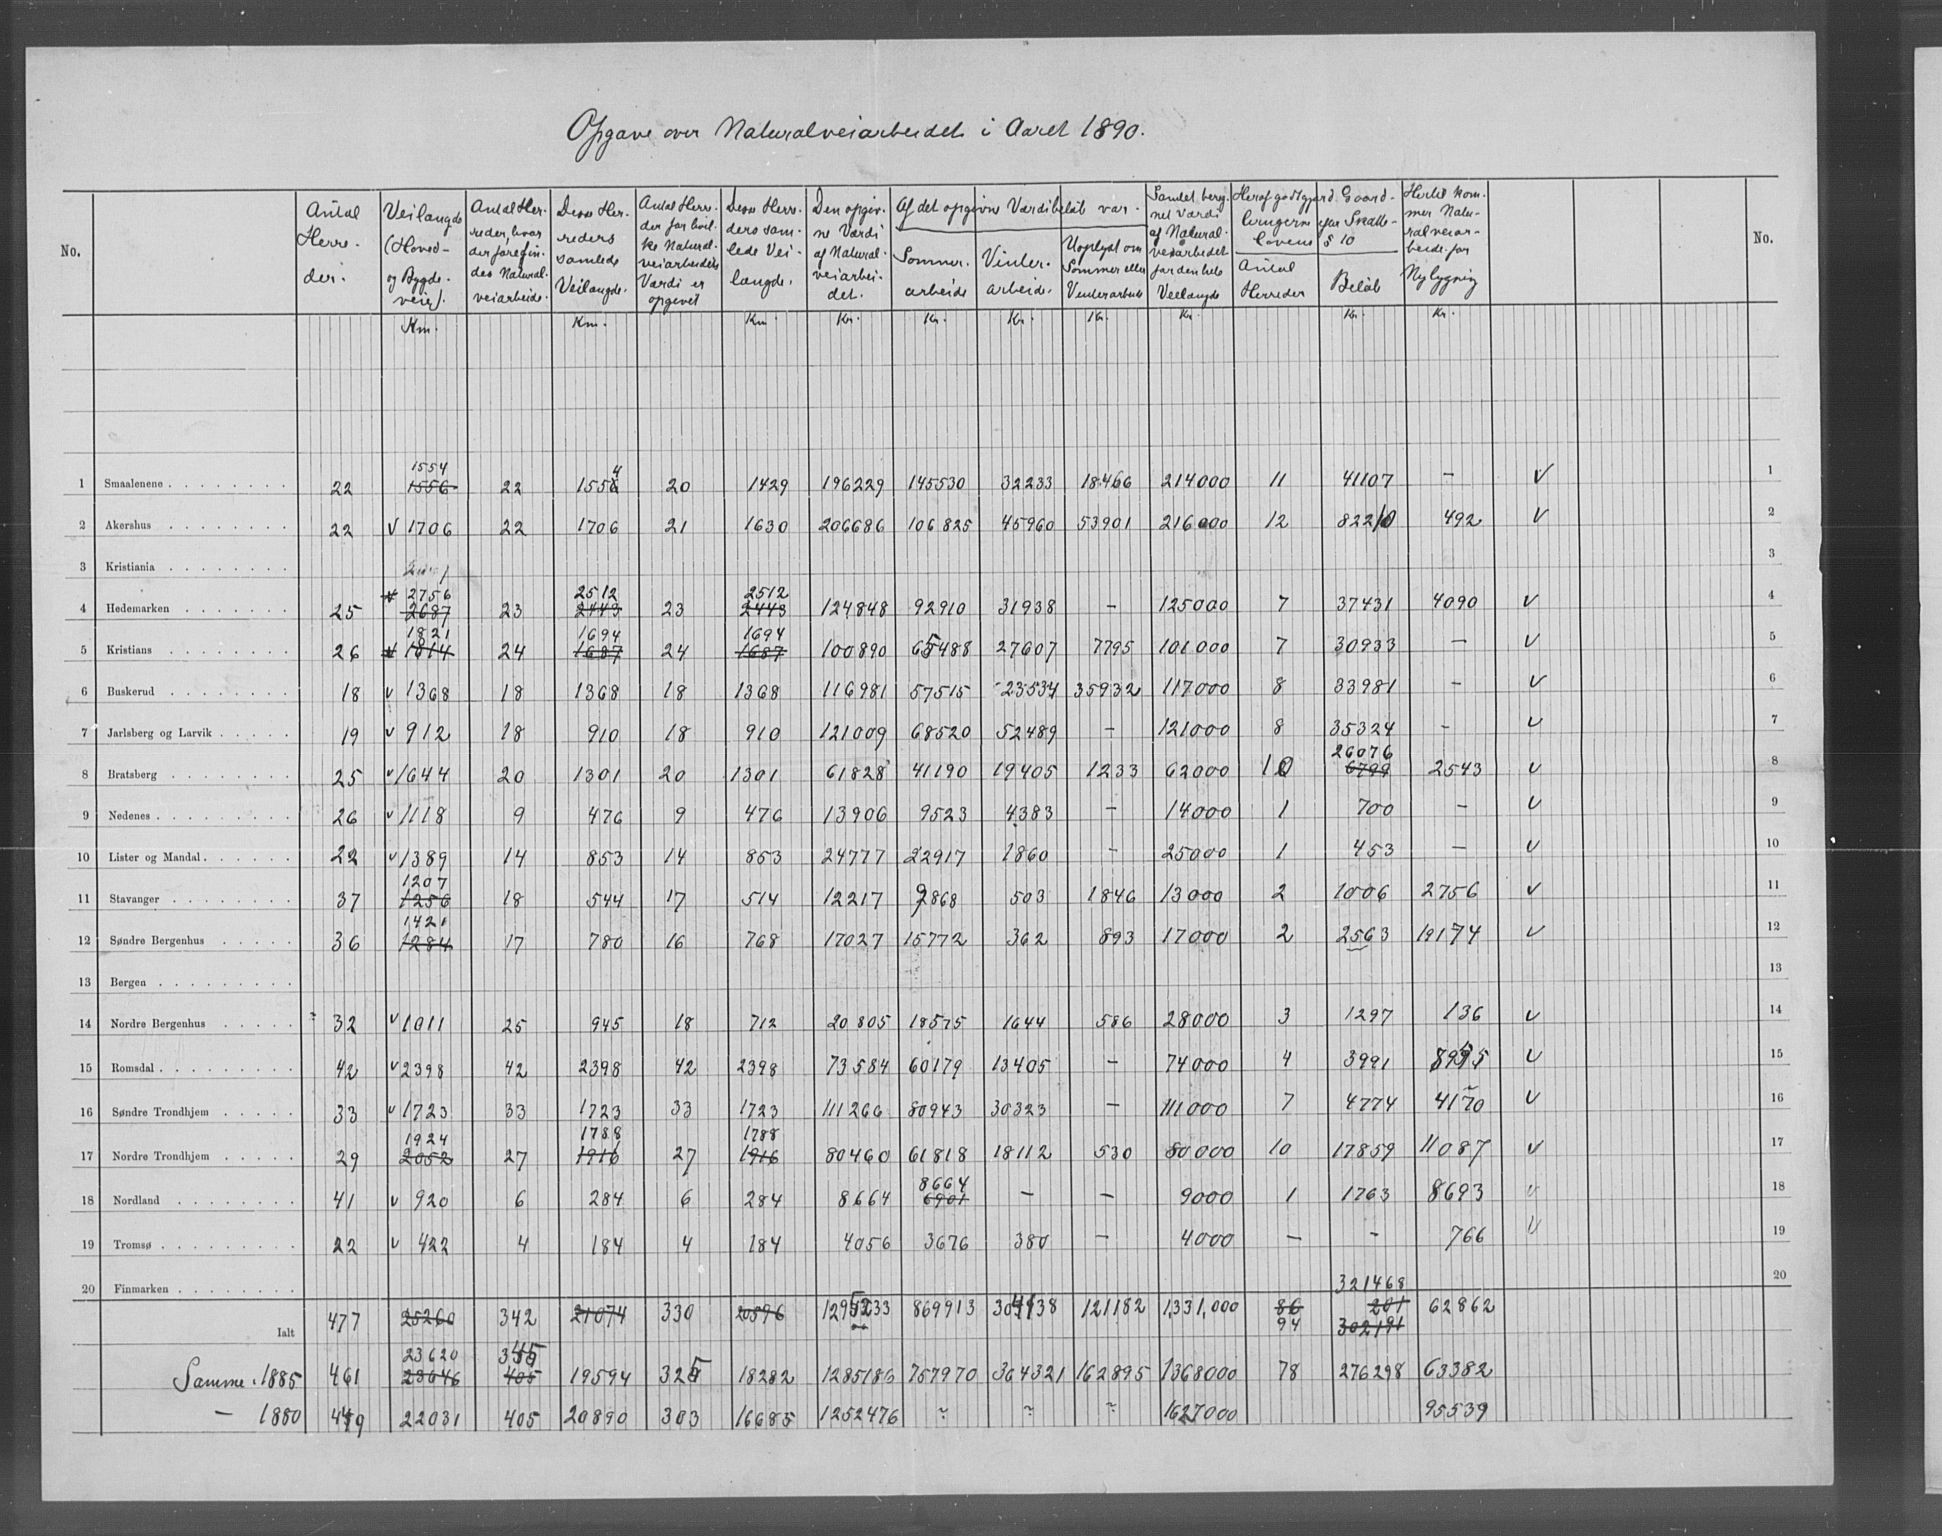 Opgave over Naturalveiarbeidet i Aaret 1890.
No. | | Antal Herre- der. | Veilængde (Hoved- og Bygde- veie). | Antal Her- reder, hvor der foregin- des Natural- veiarbeide. | Disse Her- reders samlede Veilængde. | Antal Herre- der for hvil- ke Natural- veiarbeidets Værdi er opgivet | Disse Herre- ders sam- lede Vei- længde. | Den opgiv- ne Værdi af Natural- veiarbei- det. | Af det opgivne Værdibeløb var. Sommer- arbeide | Vinter- arbeide. | Uoplyst om Sommer eller Vinterarbeide | Samlet bereg- net Værdi af Natural- veiarbeidet for den hele Veilængde | Heraf godtgjord Gaard- brugerne efter Skatte- lovens § 10 Antal Herreder | Beløb | Hertil kom- mer Natu- ralveiar- beide for Nylygning | No.
Km. | Km. | Km. | Kr. | Kr. | Kr. | Kr. | Kr. | Kr. | Kr.
1 Smaalenene 22 1554 1556 22 1554 20 1429 196229 145530 32233 18466 214000 11 41107 — V 1
2 Akershus 22 V 1706 22 1706 21 1630 206686 106825 45960 53901 216000 12 82210 492 V 2
3 Kristiania 3
4 Hedemarken 25 2756 2687 23 2512 2443 23 2512 2443 124848 92910 31938 - 125000 7 37431 4090 V 4
5 Kristians 26 1821 1814 24 1694 1687 24 1694 1687 100890 65488 27607 7795 101000 7 30933 — V 5
6 Buskerud 18 V 1368 18 1368 18 1368 116981 57515 23534 35932 117000 8 33981 - V 6
7 Jarlsberg og Larvik 19 V 912 18 910 18 910 121009 68520 52489 - 121000 8 35324 - V 7
8 Bratsberg 25 V 1644 20 1301 20 1301 61828 41190 19405 1233 62000 10 26076 6799 2543 V 8
9 Nedenes 26 V 1118 9 476 9 476 13906 9523 4383 - 14000 1 700 - V 9
10 Lister og Mandal 22 V 1389 14 853 14 853 24777 22917 1860 - 25000 1 453 — V 10
11 Stavanger 37 1207 1256 18 544 17 514 12217 9868 503 1846 13000 2 1006 2756 V 11
12 Søndre Bergenhus 36 1421 1284 17 780 16 768 17027 15772 362 893 17000 2 2563 19174 V 12
13 Bergen 13
14 Nordre Bergenhus 32 V 1011 25 945 18 712 20805 18575 1644 586 28000 3 1297 136 V 14
15 Romsdal 42 V 2398 42 2398 42 2398 73584 60179 13405 - 74000 4 3991 V 15
16 Søndre Trondhjem 33 V 1723 33 1723 33 1723 111266 80943 30323 - 111000 7 4774 4170 V 16
17 Nordre Trondhjem 29 1924 2052 27 1788 1916 27 1788 1916 80460 61818 18112 530 80000 10 17859 11087 V 17
18 Nordland 41 V 920 6 284 6 284 8664 8664 6901 — — 9000 1 1763 8693 V 18
19 Tromsø 22 V 422 4 184 4 184 4056 3676 380 — 4000 — - 766 V 19
20 Finmarken 20
Ialt 477 25260 342 21074 330 20596 1295233 869913 121182 1,331,000 86 94 321468 201 302191 62862
Samme 1885 461 23620 23646 345 405 19594 325 18282 1285186 757970 364321 162895 1368000 78 276298 63382
— 1880 449 22031 405 20890 303 16685 1252476 ~ ~ ~ 1627000 95539